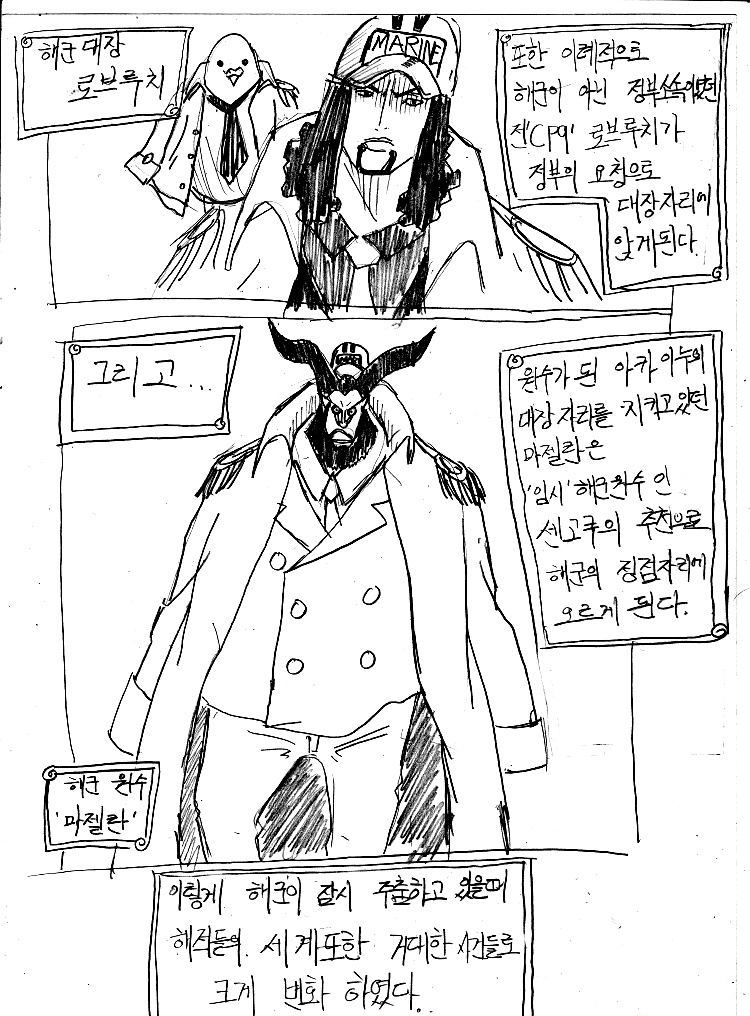 해군대장
로브루치
MARINE
또한 이례적으로
해군이 아닌 정부소속이었던
전'CP9' 로브루치가
정부의 요청으로
대장자리에
앉게된다.
그리고...
원수가 된 아카이누의
대장자리를 지키고있던
마젤란은
'임시' 해군원수인
센고쿠의 추천으로
해군의 정점자리에
오르게 된다.
해군 원수
'마젤란'
이렇게 해군이 잠시 주춤하고 있을때
해적들의 세계또한 거대한 사건들로
크게 변화 하였다.